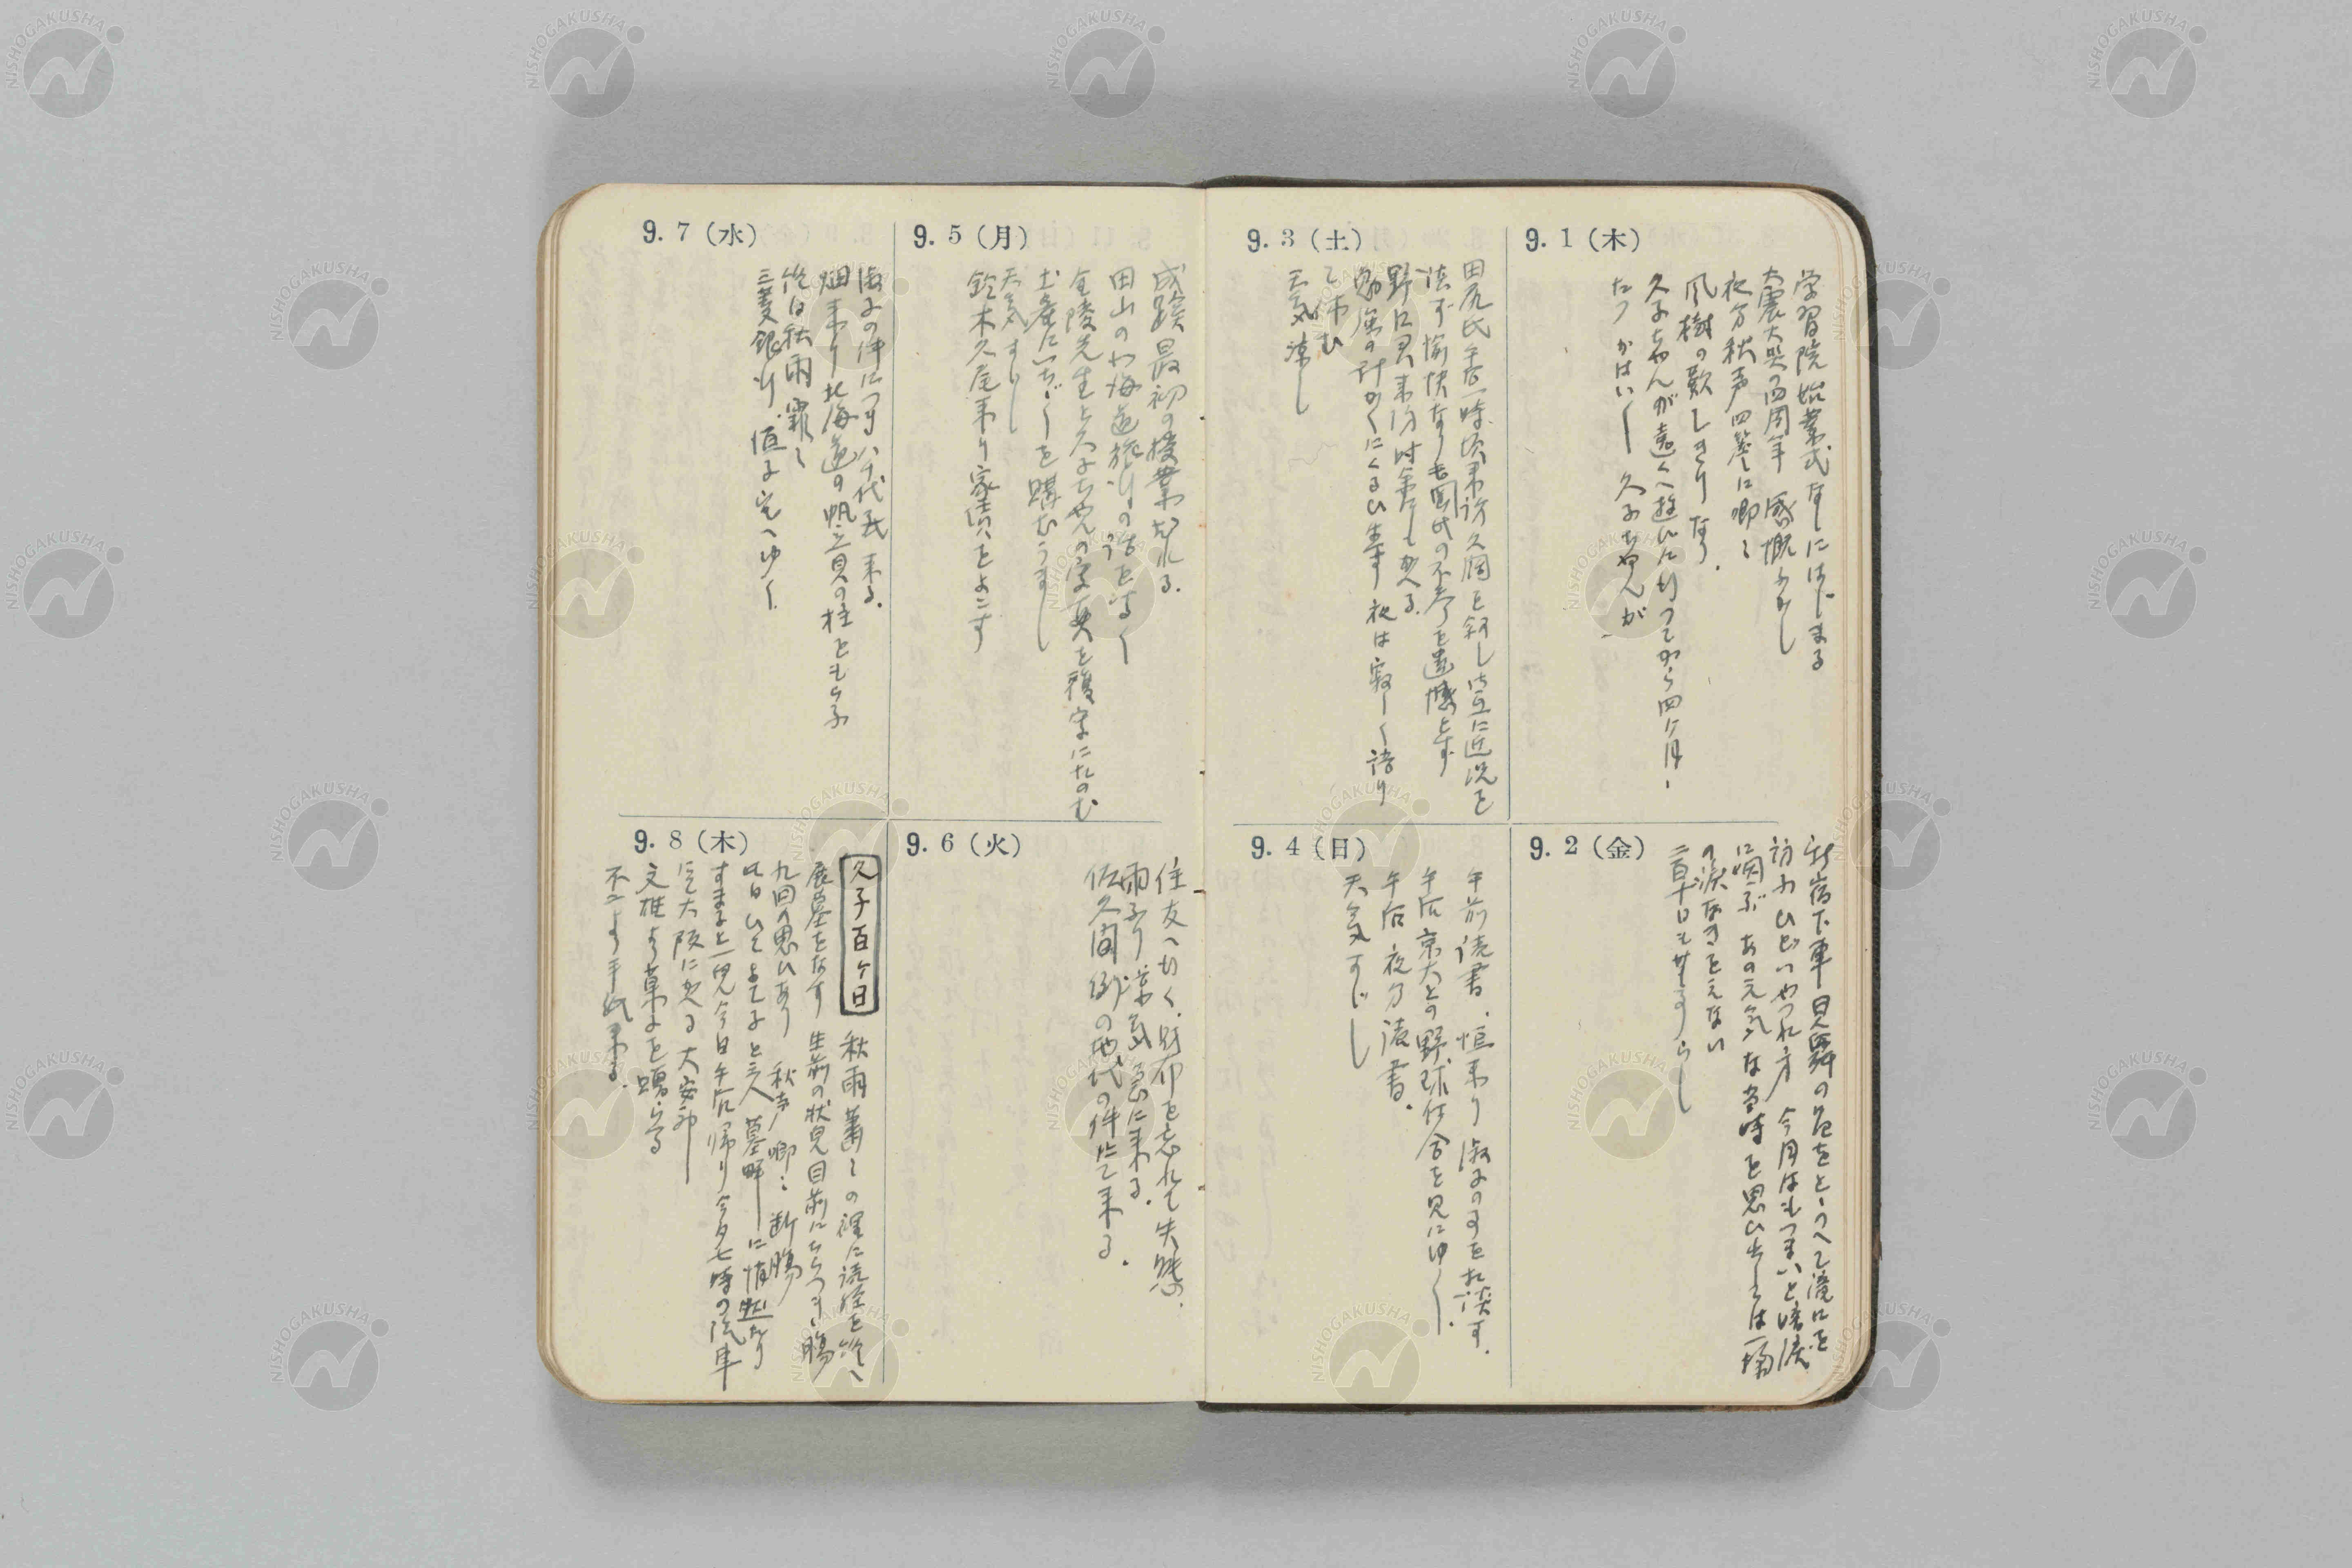 9. 1 (木)
学習院始業式なしにはじまる
大震大災の四周年 感慨ふかし
夜分秋声四壁に喞〻
風樹の歎しきりなり.
久子ちやんが遠くへ遊びに行つてから四ケ月、
たつ かはいゝ 久子ちやんが
9. 2 (金)
新宿下車見舞の品をとゝのへて滝口を
訪ふ ひどいやつれ方 今月はもつまいと暗涙
に咽ぶ あの元気な当時を思ひ出しては一掬
の涙なきをえない
二百十日も無事らし
9. 3 (土)
田尻氏午后一時頃来訪久闊を叙し 互に近況を
談ず愉快なり 氏の不参を遺憾とす
野口君来訪 かへる.
夜は寂しく語り
て休む
天気凉し
9. 4 (日)
午前読書. 恒来り 淑子の事を相談す.
午后京大との野球仕合を見にゆく.
午后 夜分読書.
天気すゞし
9. 5 (月)
成蹊最初の授業だれる.
田山の北海道旅行の話をきく
金陵先生と久子ちやんの写真を複写にたのむ
土産にいちゞくを購むうまし
天気すゞし
鈴木久尾来り家賃をよこす
9. 6 (火)
住友へ行く. 財布を忘れて失態.
雨ふり 凉気急に来る.
佐久間 例の地代の件にて来る.
9. 7 (水)
淑子の件につき八千代氏来る.
畑来り北海道の帆立貝の柱をもらふ
終日秋雨霏〻
三菱銀行. 恒子宅へゆく
9. 8 (木)
久子百ケ日 秋雨蕭〻の裡に読経を終へ
展墓をなす 生前の状児目前にちらつき、腸
九回の思ひあり 秋声喞〻 断腸
此日 ひさよ てる子と三人 墓畔に悄然たり
すま子と一児今日午后帰り今夕七時の汽車
にて大阪にかへる 大安即
文雄より菓子を贈らる
不二より手紙来る.